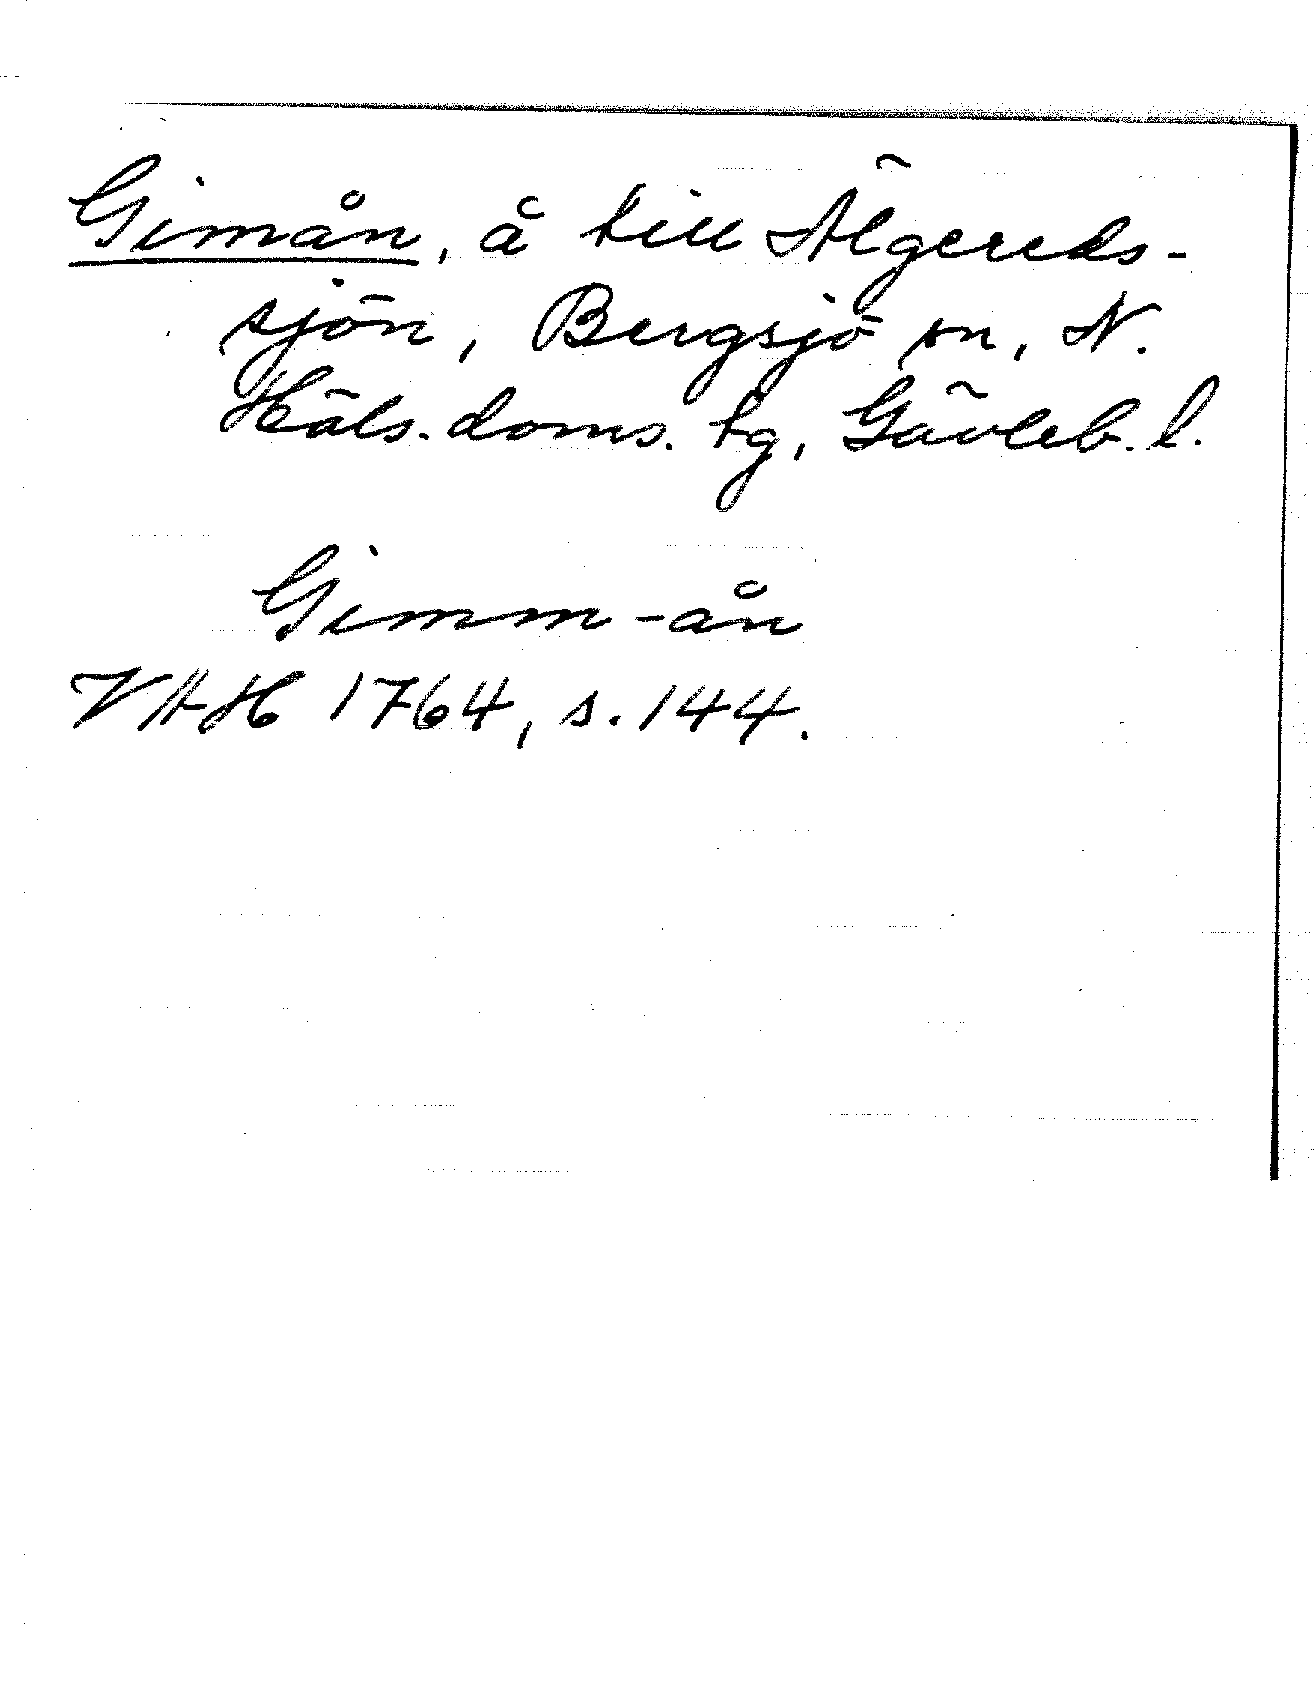 Gimån, å till Älgereds-
sjön, Bergsjö sn, N.
Häls. doms. tg, Gävleb. l.
Gimm-ån
VAH 1764, s. 144.